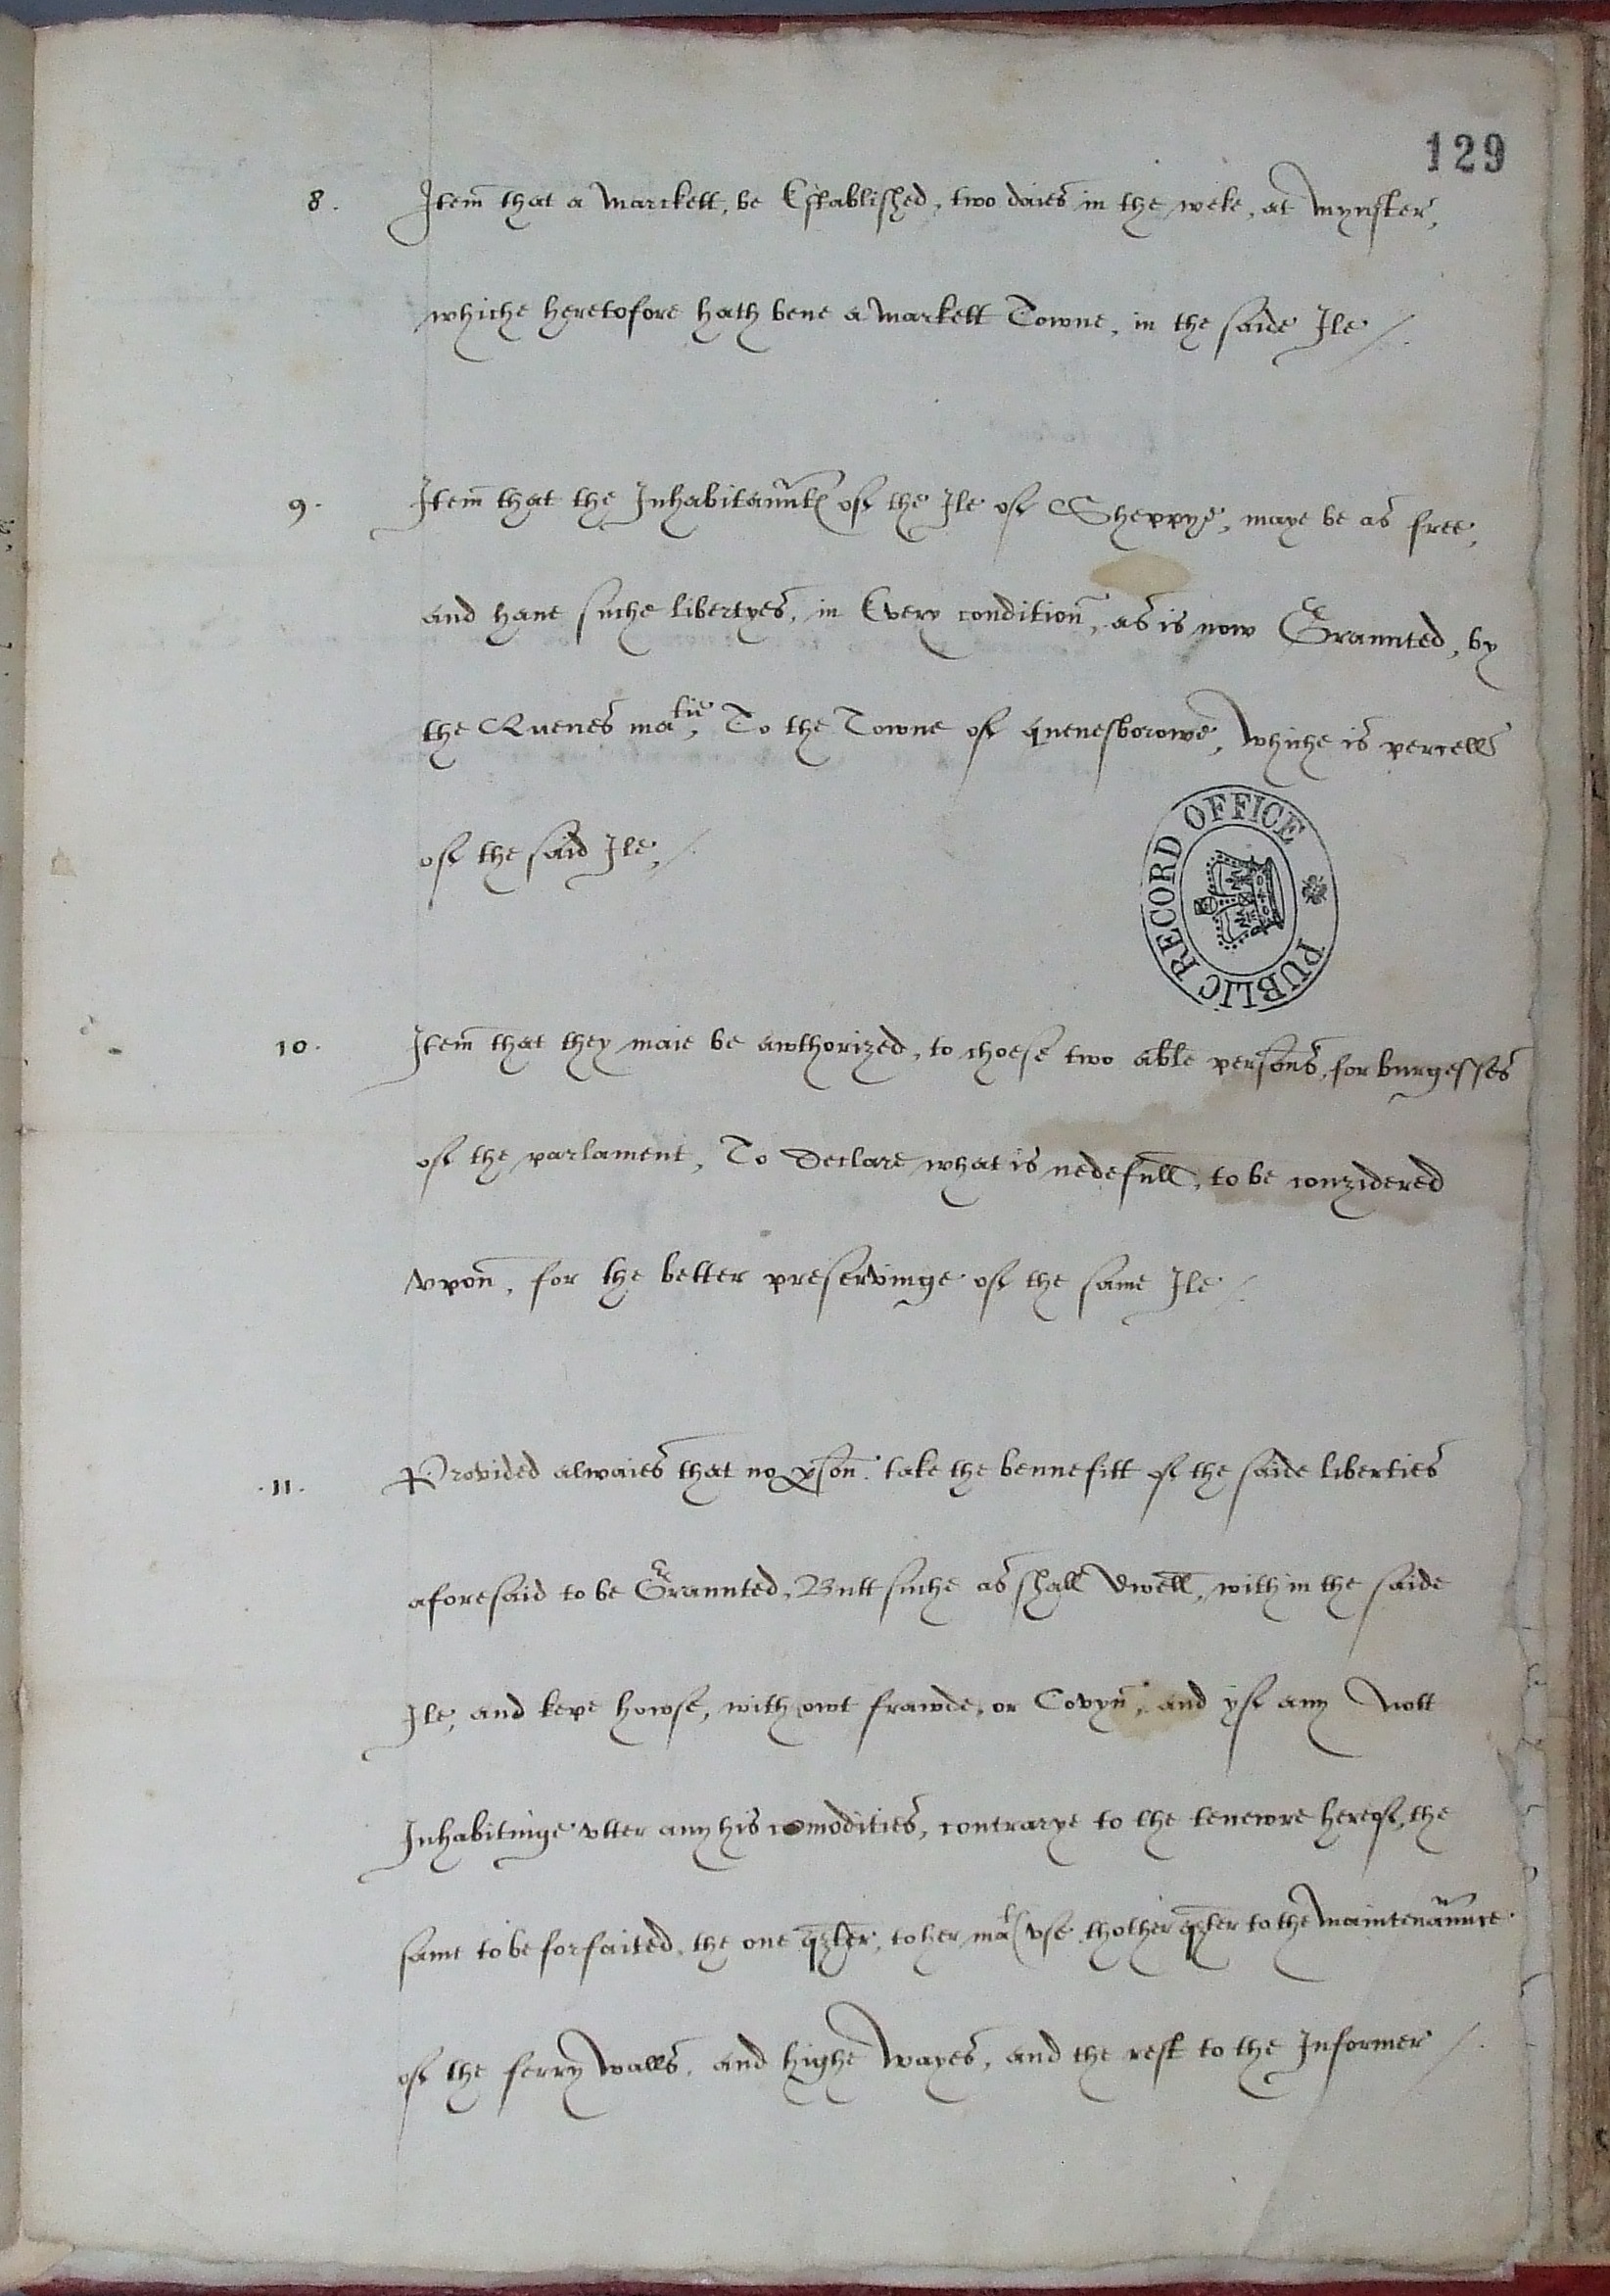 129
8. Item that a Marckett, be Established, two daies in the weke, at Mynster,
whiche heretofore hath bene a Markett Towne, in the saide Ile /.
9. Item that the Inhabitauntes of the Ile of Sheppye, maye be as free,
and haue suche libertyes, in Every condition, as is now Graunted, by
the Quenes matie, To the Towne of quenesborowe, whiche is percell
of the said Ile, /.
PUBLIC RECORD OFFICE
10. Item that they maie be awthorized, to choese two able persons, for burgesses
of the parlament, To Declare what is nedefull, to be conzidered
vpon, for the better preservinge of the same Ile /.
.11. Provided alwaies that no pson take the bennefitt of the saide liberties
aforesaid to be Graunted, Butt suche as shall dwell, with in the saide
Ile, and kepe howse, with owt frawde, or Covyn, and yf any Nott
Inhabitinge vtter any his comodities, contrarye to the tenewre hereof, the
same to be forfaited, the one qrter, to her mates vse thother qrter to the Maintenaunce
of the ferry Walls, and highe Wayes, and the rest to the Informer /.